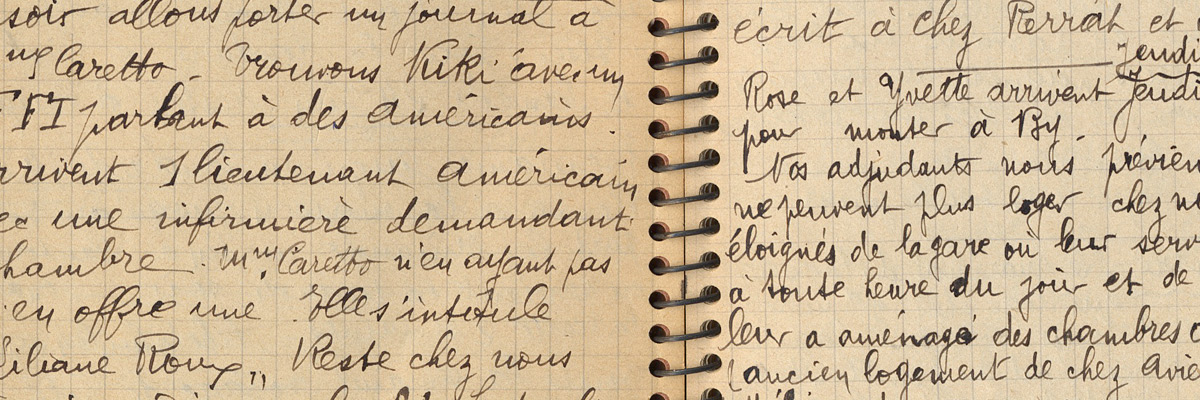 soir allons porter un journal à
Caretto - Trouvons Kiki avec un
FFI parlant à des américains.
rrivent 1 lieutenant américain
ec une infirmière demandant
hambre. Mme Caretto n'en ayant pas
en offre une. Elle s'intitule
Liliane Roux,, Reste chez nous
écrit à chez Perrat et
Jeudi
Rose et Yvette arrivent Jeudi
pour monter à By.
Nos adjudants nous prévien
ne peuvent plus loger chez no
éloignés de la gare où leur serv
à toute heure du jour et de
leur a aménagé des chambres
l'ancien logement de chez